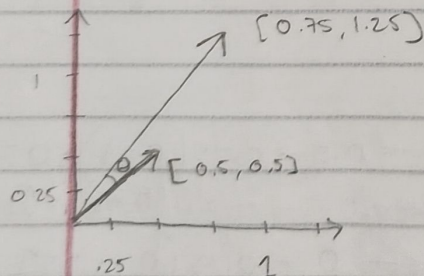 [0.75, 1.25]
1
θ
[0.5, 0.5]
0.25
.25
1